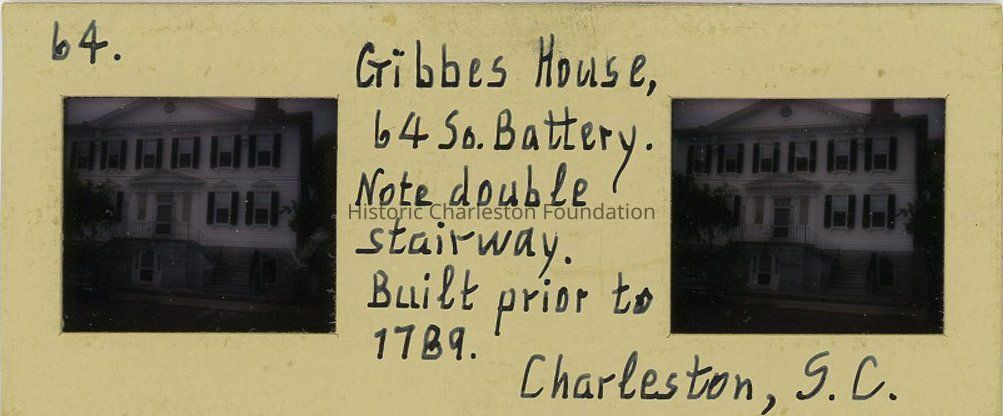 64.
Gibbes House,
64 So. Battery.
Note double
Historic Charleston Foundation
stairway.
Built prior to
1789.
Charleston, S.C.